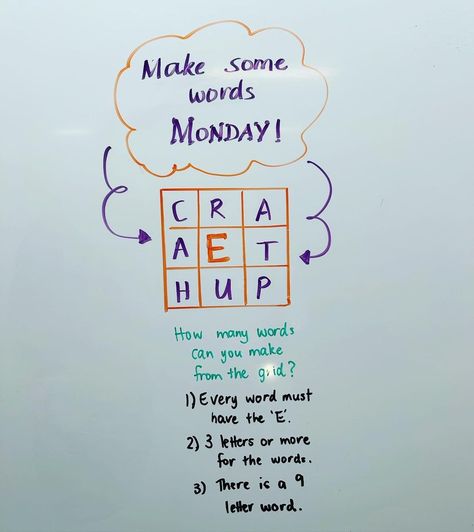 Make some
words
MONDAY!
C R A
A E T
H U P
How many words
can you make
from the grid?
1) Every word must
have the 'E'.
2) 3 letters or more
for the words.
3) There is a 9
letter word.